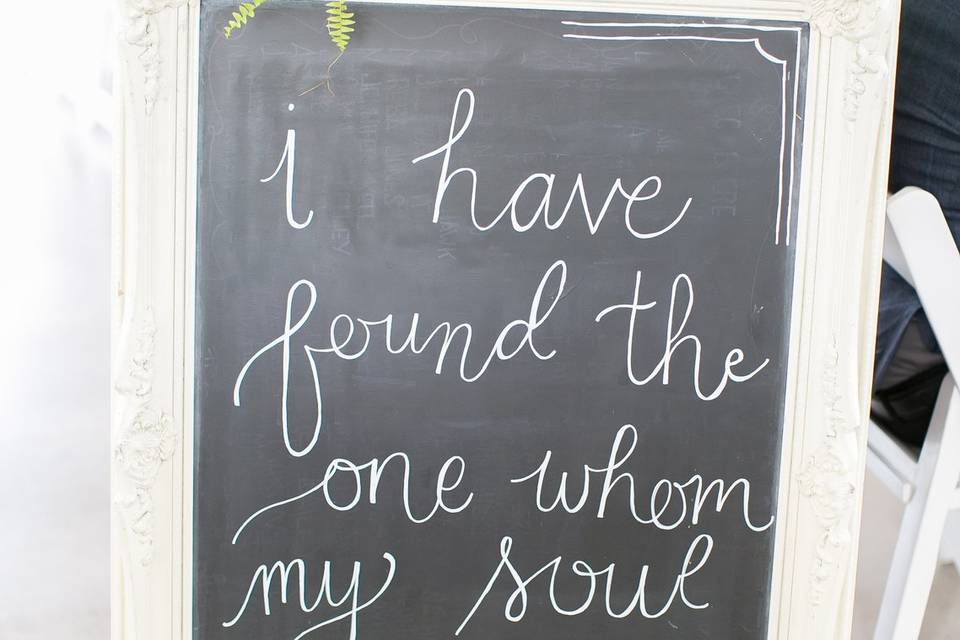 i have
found the
one whom
my soul